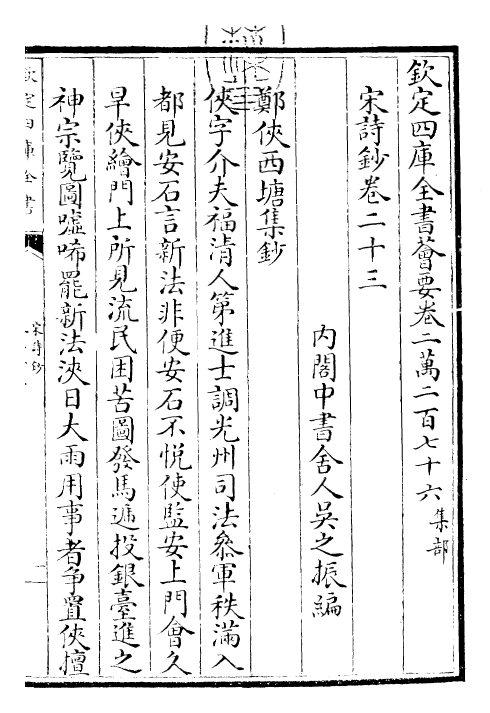 欽定四庫全書薈要卷二萬二百七十六集部
宋詩鈔卷二十三
內閣中書舍人吳之振編
鄭俠西塘集鈔
俠字介夫福清人第進士調光州司法叅軍秩滿入
都見安石言新法非便安石不悅使監安上門會久
旱俠繪門上所見流民困苦圖發馬遞投銀臺進之
神宗覽圖噓唏罷新法浹日大雨用事者争置俠擅
欽定四庫全書
宋詩鈔